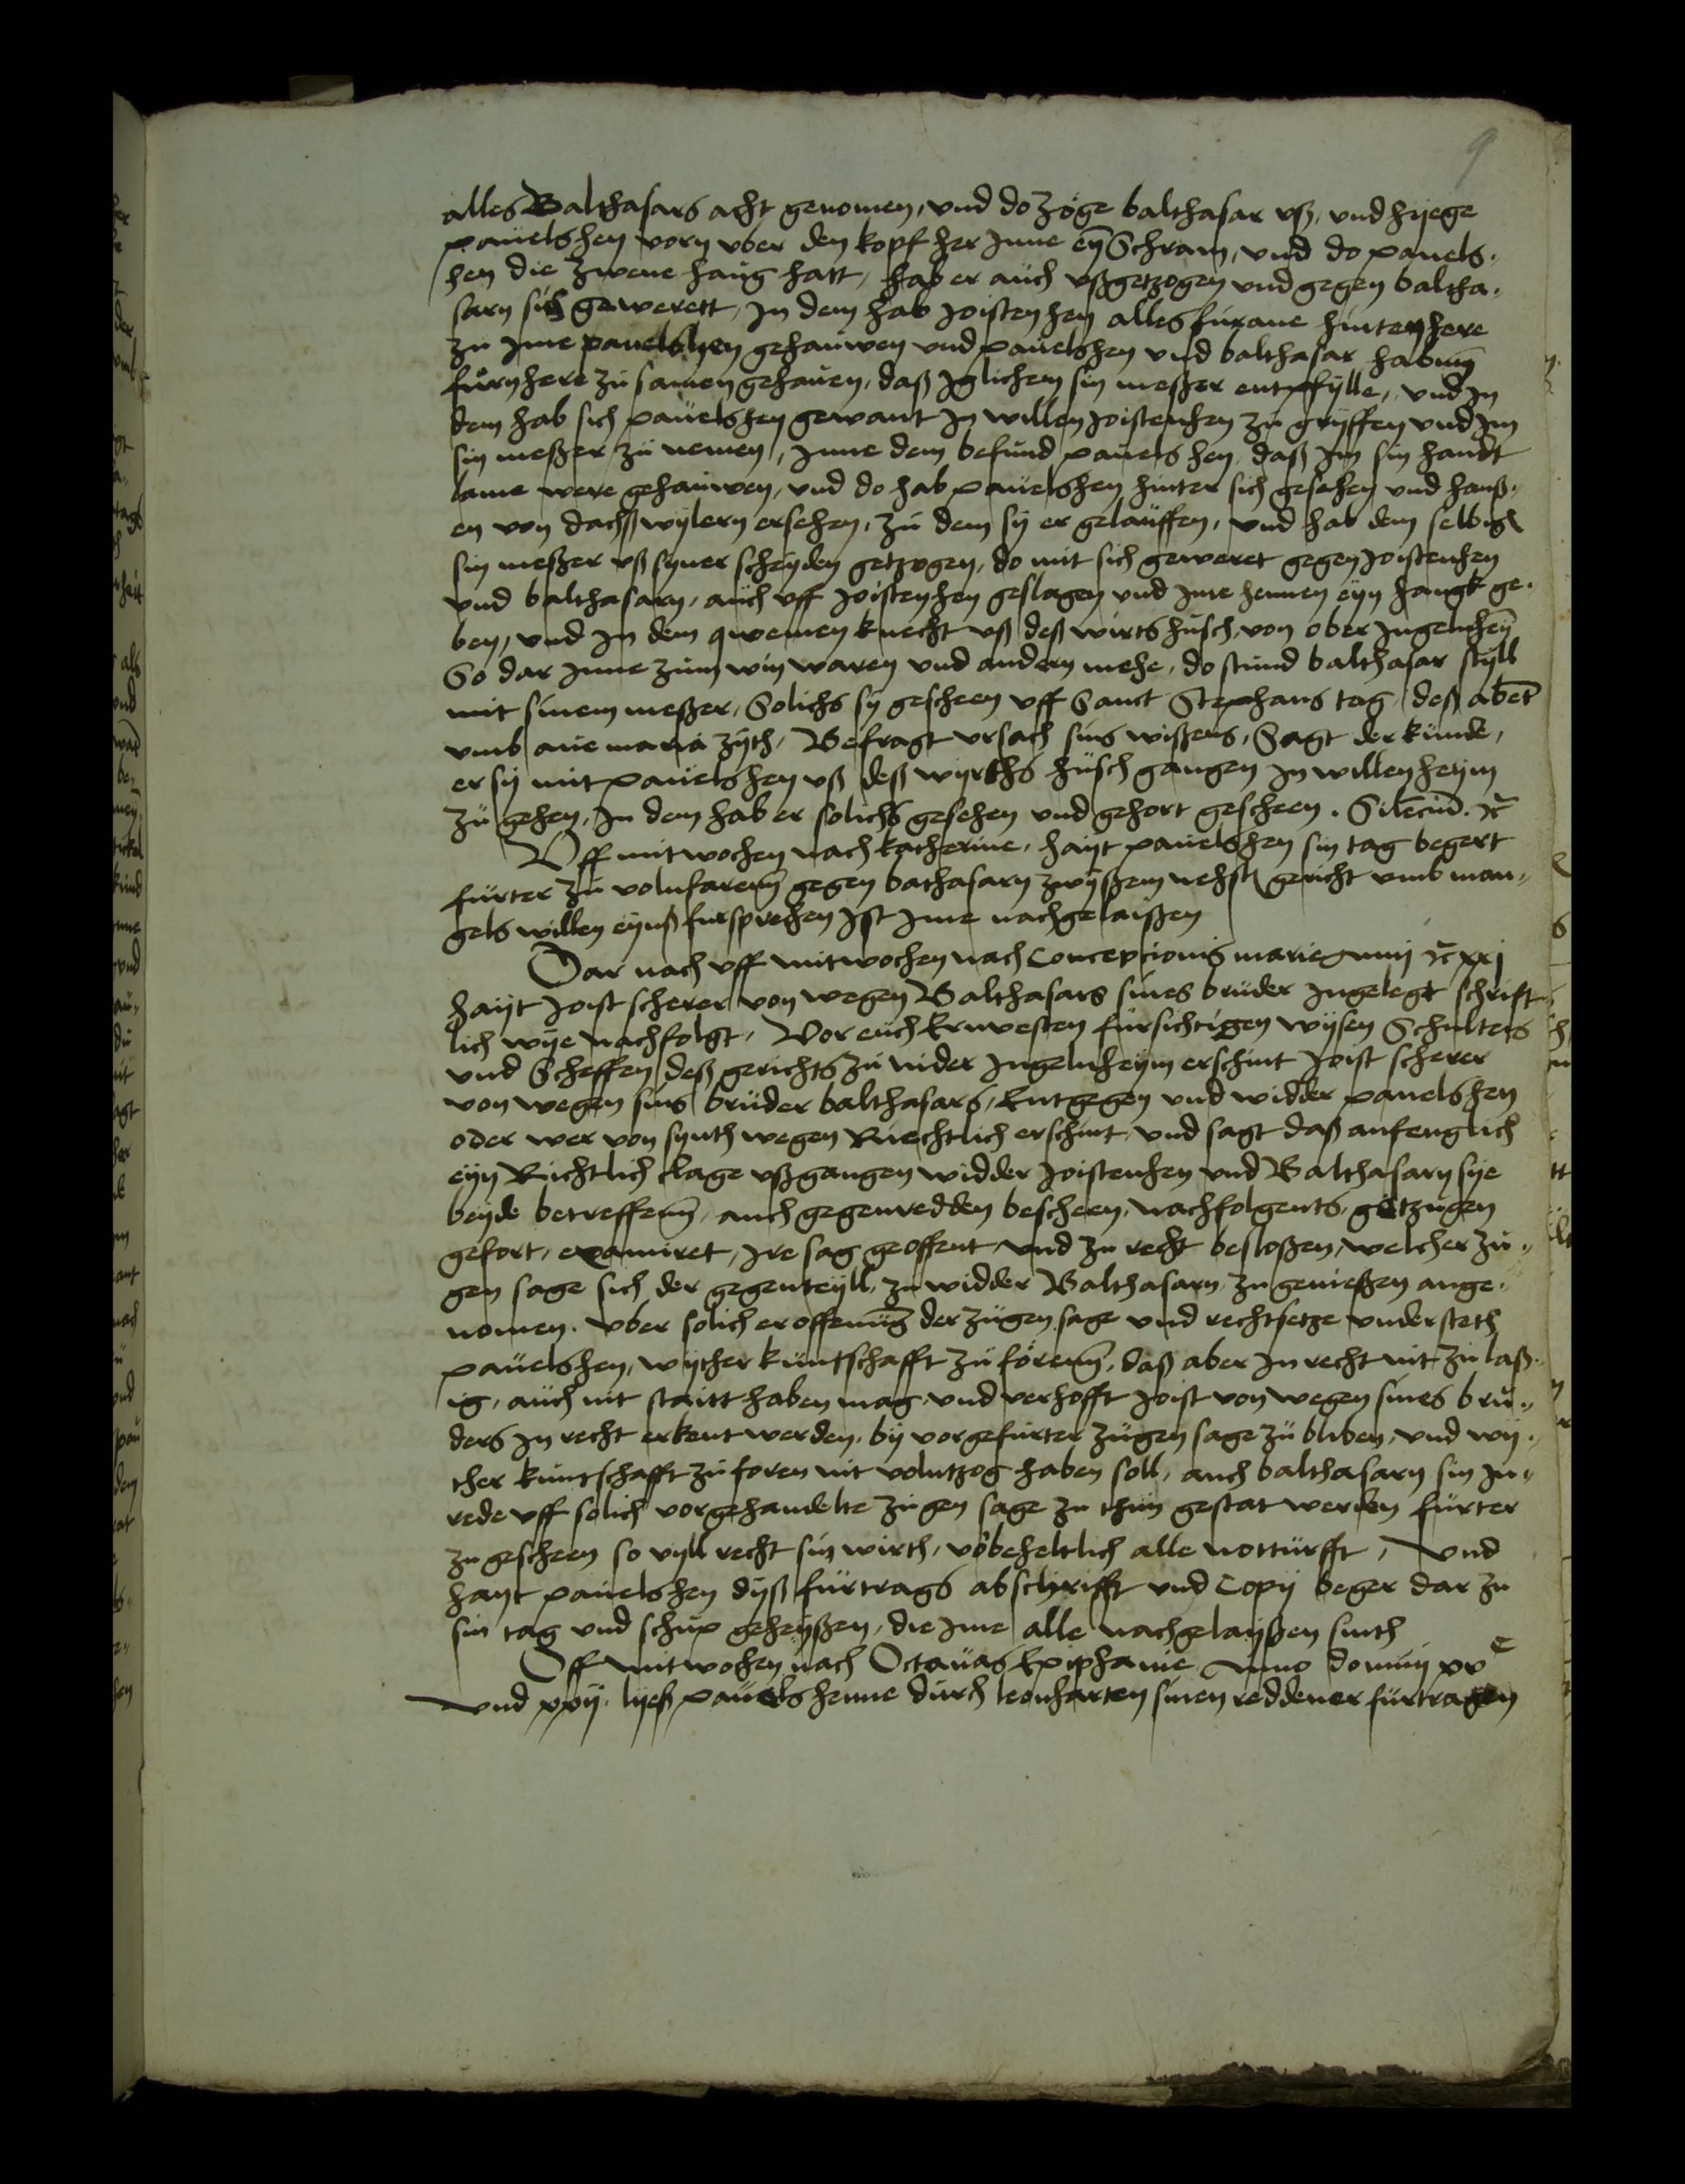 9
alles Balthasars acht genomen, vnd do zoge balthasar vß, vnd hyege
pauelshen vorn vber den kopf her Jnne eyn Schram, vnd do pauels-
hen die zwene haug hatt, hab er auch vßgetzogen vnd gegen baltha-
sarn sich gewerett, Jn dem hab Joisten hen alles furane hinten here
zu Jme pauelshen gehauwen vnd pauelshen vnd balthasar habung
furnhere zu samen gehauen, daß Iglichem sin meßer entpfylle, vnd Jn
dem hab sich pauelshen gewant Jn willen Joistenhen zu gryffen vnd Jm
sin meßer zu nemen, Jnne dem befund pauelshen daß Jm sin handt
lame were gehauwen, vnd do hab pauelshen hinter sich gesehen vnd hanß-
en von dachßwylern ersehen, zu dem sy er gelauffen, vnd hab dem selbigen
sin meßer vß syner scheyden getzogen, do mit sich geweret gegen Joistenhen
vnd balthasarn, auch vff Joisten hen geslagen vnd Jme hennen eyn haugk ge-
ben, vnd Jn dem qwemen knecht vß deß wirts husch, von ober Jngelnheym
So dar Jnne zum win waren vnd andern mehe, do stund balthasar styll
mit sinem meßer, Solichs sy gescheen vff Sanct Stephans tag, deß abent
vmb aue maria zyth, Befragt vrsach sins wißens, Sagt der kunde,
er sy mit pauelshen vß deß wyrths husch gangen Jn willen heym
zu gehen, Jn dem hab er solichs gesehen vnd gehort gescheen. Silencium. etc
Vff mitwochen nach katherine, hayt pauelshen sin tag begert
furter zu volnfarenn gegen bathasarn zwyßem nehsten gericht vmb man-
gels willen eynß fursprechen Jst Jme nachgelaißen
Dar nach vff mitwochen nach Concepcionis marie etc xxj
hayt Joist scherer von wegen Balthasars sines bruder Jngelegt schrift-
lich wye nachfolgt, Vor euch Ernvesten fursichtigen wysen Schultes
vnd Scheffen deß gerichts zu nider Jngelnheym erschint Joist scherer
von wegen sins bruder balthasars, Entgegen vnd widder pauelshen
oder wer von synth wegen Riechtlich erschint, vnd sagt daß anfenglich
eyn Richtlich clage vßgangen widder Joistenhen vnd Balthasarn sye
beyde betreffenn, auch gegenredden bescheen, nachfolgents, getzugen
gefort, examiret, Jre sag geoffent vnd zu recht besloßen, welcher zu-
gen sage sich der gegenteyll, zu widder Balthasarn, zu genießen ange-
nomen. vber solich eroffenung der zugen sage vnd rechtsetze vndersteth
pauelshen, wyther kuntschafft zu forenn, daß aber Jn recht nit zu laß-
ig, auch nit staitt haben mag, vnd verhofft Joist von wegen sines bru-
ders Jn recht erkent werden, by vorgefurter zugen sage zu bliben, vnd wy-
ther kuntschafft zu foren nit volntzog haben soll, auch balthasarn sin Jn-
rede vff solich vorgehandelte zugen sage zu thun gestat werden furter
zu gescheen so vyll recht sin wirth, vorbeheltlich alle notturfft, vnd
hayt pauelshen dyß furtrags abschrifft vnd Copy beger dar zu
sin tag vnd schup geheyßen, die Jme alle nachgelayßen sinth
Vff mitwochen nach Octauas Epiphanie Anno dominj xv c
vnd xxij. lyeß pauelshenne durch leonharten sinen reddener furtragen